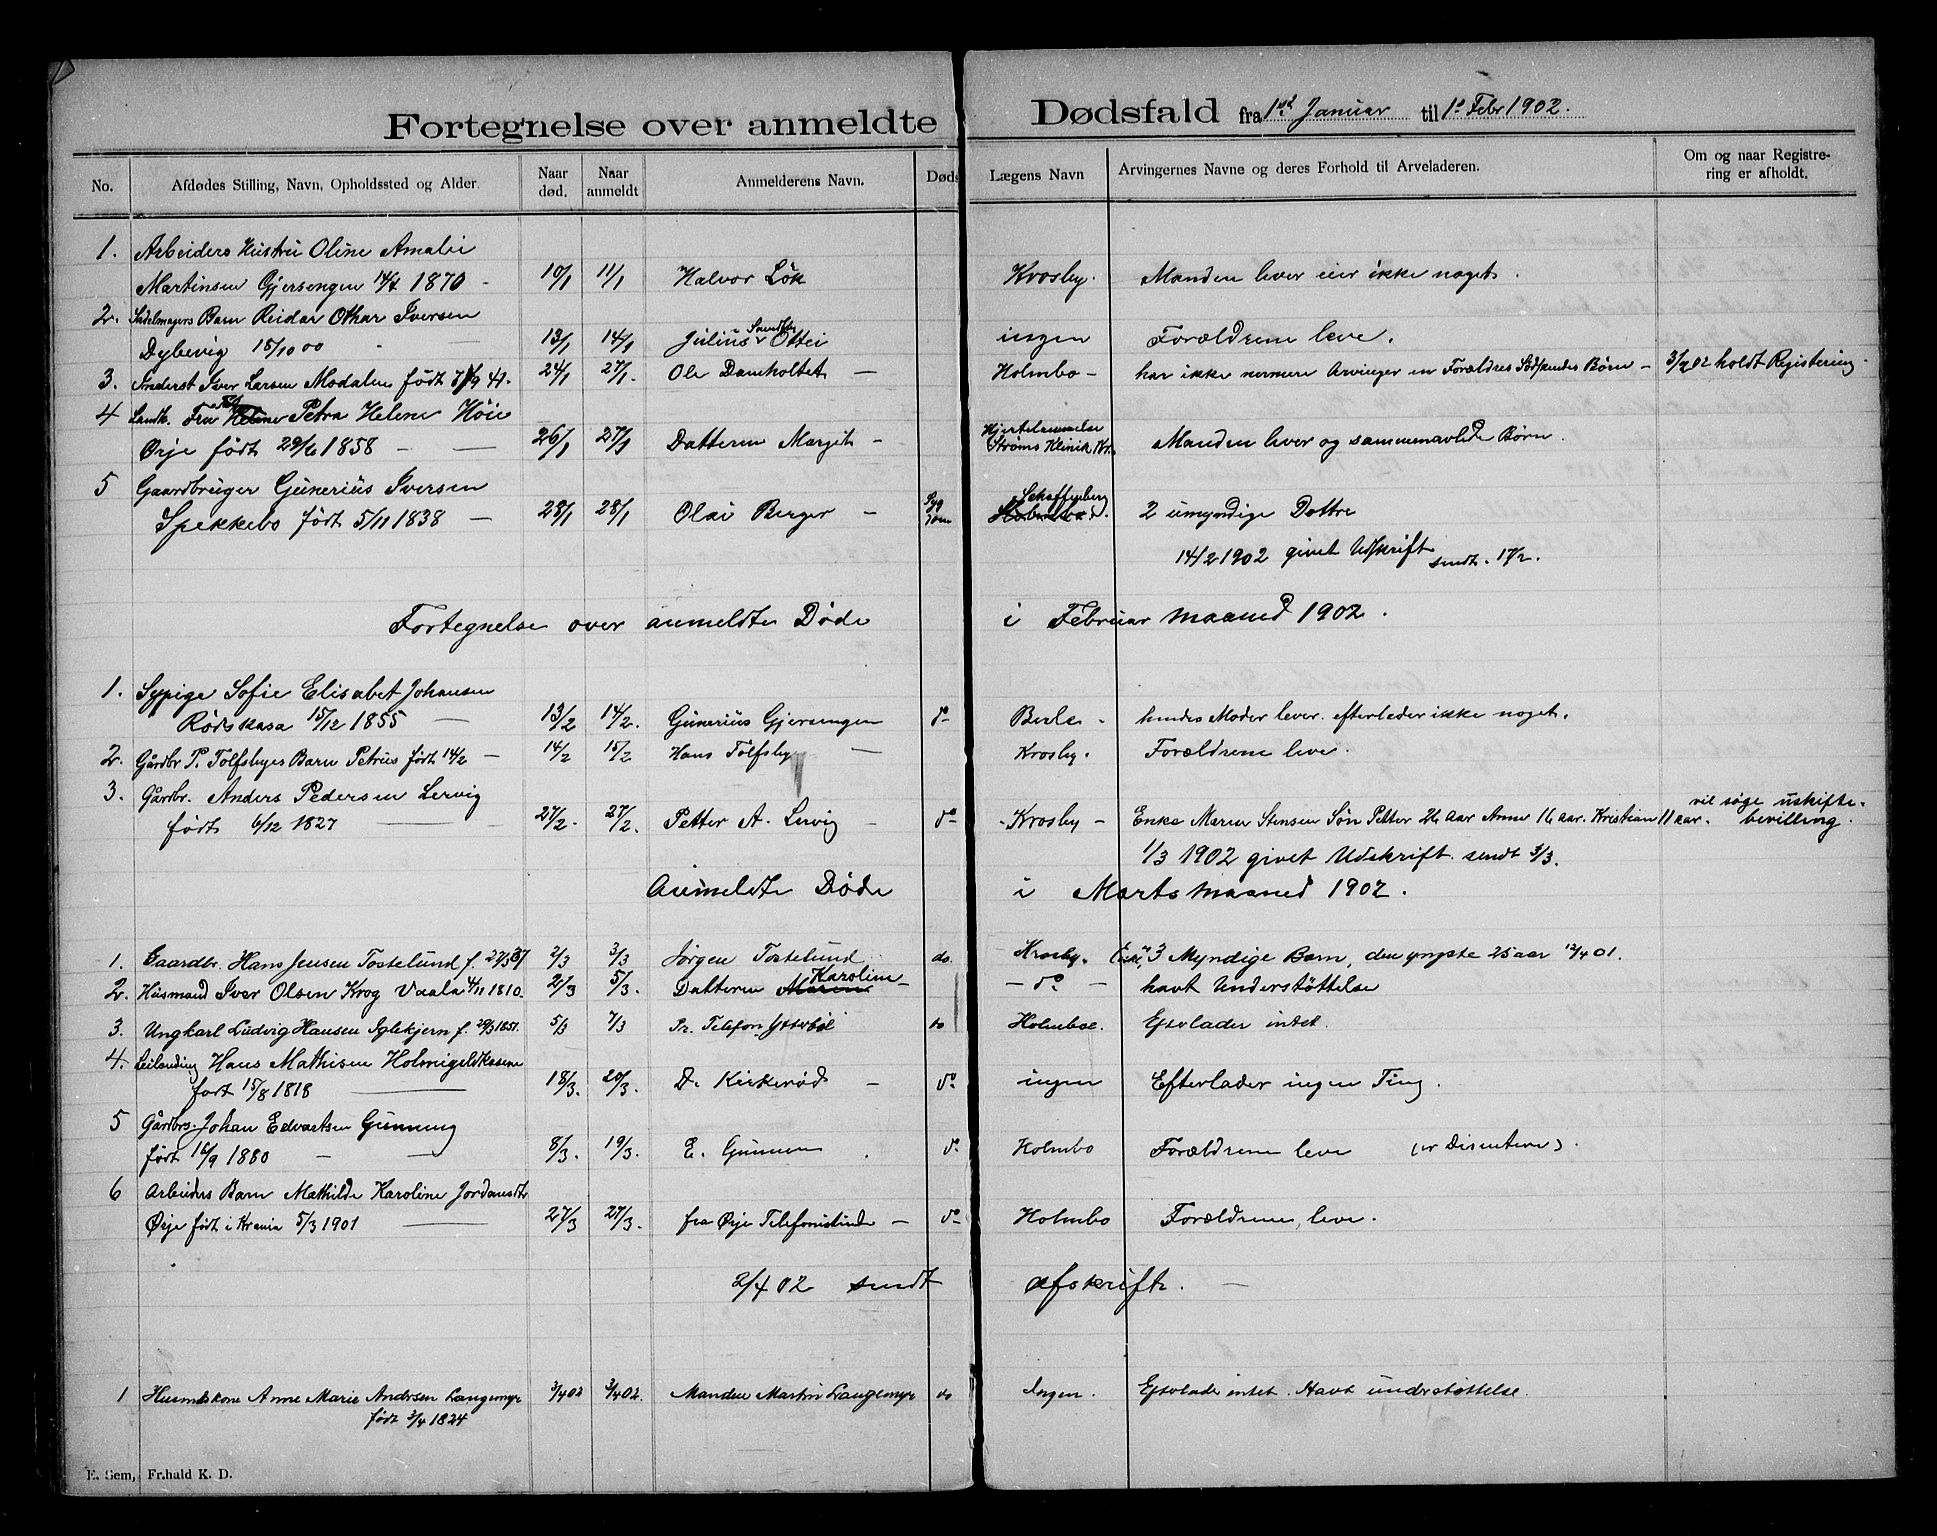 Fortegnelse over anmeldte Dødsfald fra 1ste Januar til 1ste Febr 1902.
No. Afdødes Stilling, Navn, Opholdssted og Alder. Naar død. Naar anmeldt Anmelderens Navn. Døds Lægens Navn Arvingernes Navne og deres Forhold til Arveladeren. Om og naar Registrering er afholdt.
1. Arbeiders Hustru Oline Amalie
Martinsen Gjersengen 14/4 1870 - 10/1 11/1 Halvor Lök Krosby. Manden lever eier ikke noget.
2. Sadelmagers Barn Reidar Othar Iversen
Dybevig 18/10 00 - 13/1 14/1 Julius Ottei ingen Forældrene leve.
3. Iver Larsen Modalen født 41. 24/1 27/1. Ole Damholtet - Holmbo - har ikke nermere Arvinger en Forældres Sødskendes Børn - 3/2 02 holdt Registering.
4 Landh. Fru Petra Helene Höie
Ørje født 29/6 1858 - 26/1 27/1 Datteren Margit - Hjertelammelse Strøms Klinik Kr. Manden lever og sammenavlede Børn.
5 Gaardbruger Gunerius Iversen
Spekkebo født 5/11 1838 - 28/1 28/1 Olai Berger - Holmbo. 2 umyndige Døttre
14/2 1902 givet Udskrift sendt. 17/2.
Fortegnelse over anmeldte Døde i Februar maaned 1902.
1. Sypige Sofie Elisabet Johansen
Rødskasa 15/12 1855 - 13/2 14/2. Gunerius Gjersengen do Berle - hendes Moder lever. efterlader ikke noget.
2. Gårdbr P. Tolfsbyes Barn Petrus født 14/2 - 14/2 15/2 Hans Tolfsby - Krosby. Forældrene leve.
3. Gårdbr. Anders Pedersen Lervig
født 6/12 1827 - 27/2. 27/2. Petter A. Lervig - do - Krosby - Enke Maren Stensen Søn Petter 26 aar Anne 16 aar. Kristian 11 aar. vil søge uskiftebevilling.
1/3 1902 givet Udskrift. sendt 3/3.
Anmeldte Døde i Marts maaned 1902.
1. Gaardbr. Hans Jensen Tostelund f. 27/3 37 2/3 3/3 Jørgen Tostelund do. Krosby. Enke, 3 Myndige Barn, den yngste 25 aar 12/4 01.
2. Husmand Iver Olsen Krog Vaala 4/11 1810. 2/3 5/3. Datteren Maren Karoline - - do - havt Understøttelse
3. Ungkarl Ludvig Hansen Iglekjern f. 29/3 1851. 5/3 7/3 Pr. Telefon Ytterböl do Holmboe. Efterlader intet.
4. Leilending Hans Mathisen Holmigeldkasene
født 15/8 1818 - 18/3. 20/3. D. Kirkerød - do. ingen Efterlader ingen Ting.
5 Gårdbrs. Johan Edvartsen Gunneng
født 16/9 1880 - 8/3. 19/3. E. Gunnen do. Holmbo Forældrene leve (er Disentere).
6 Arbeiders Barn Mathilde Karoline Jordansdtr
Ørje født i Krania 5/3 1901 - 27/3 27/3. fra Ørje Telefonistinde - do Holmbo Forældrene leve.
2/4 02 sendt afskrift. -
1 Husmdskone Anne Marie Andersen Langemyr 3/4 02 3/4 02. Manden Martin Langemyr do Ingen. Efterlader intet. Havt understøttelse.
født 3/4 1824
E. Sem, Fr.hald K. D.